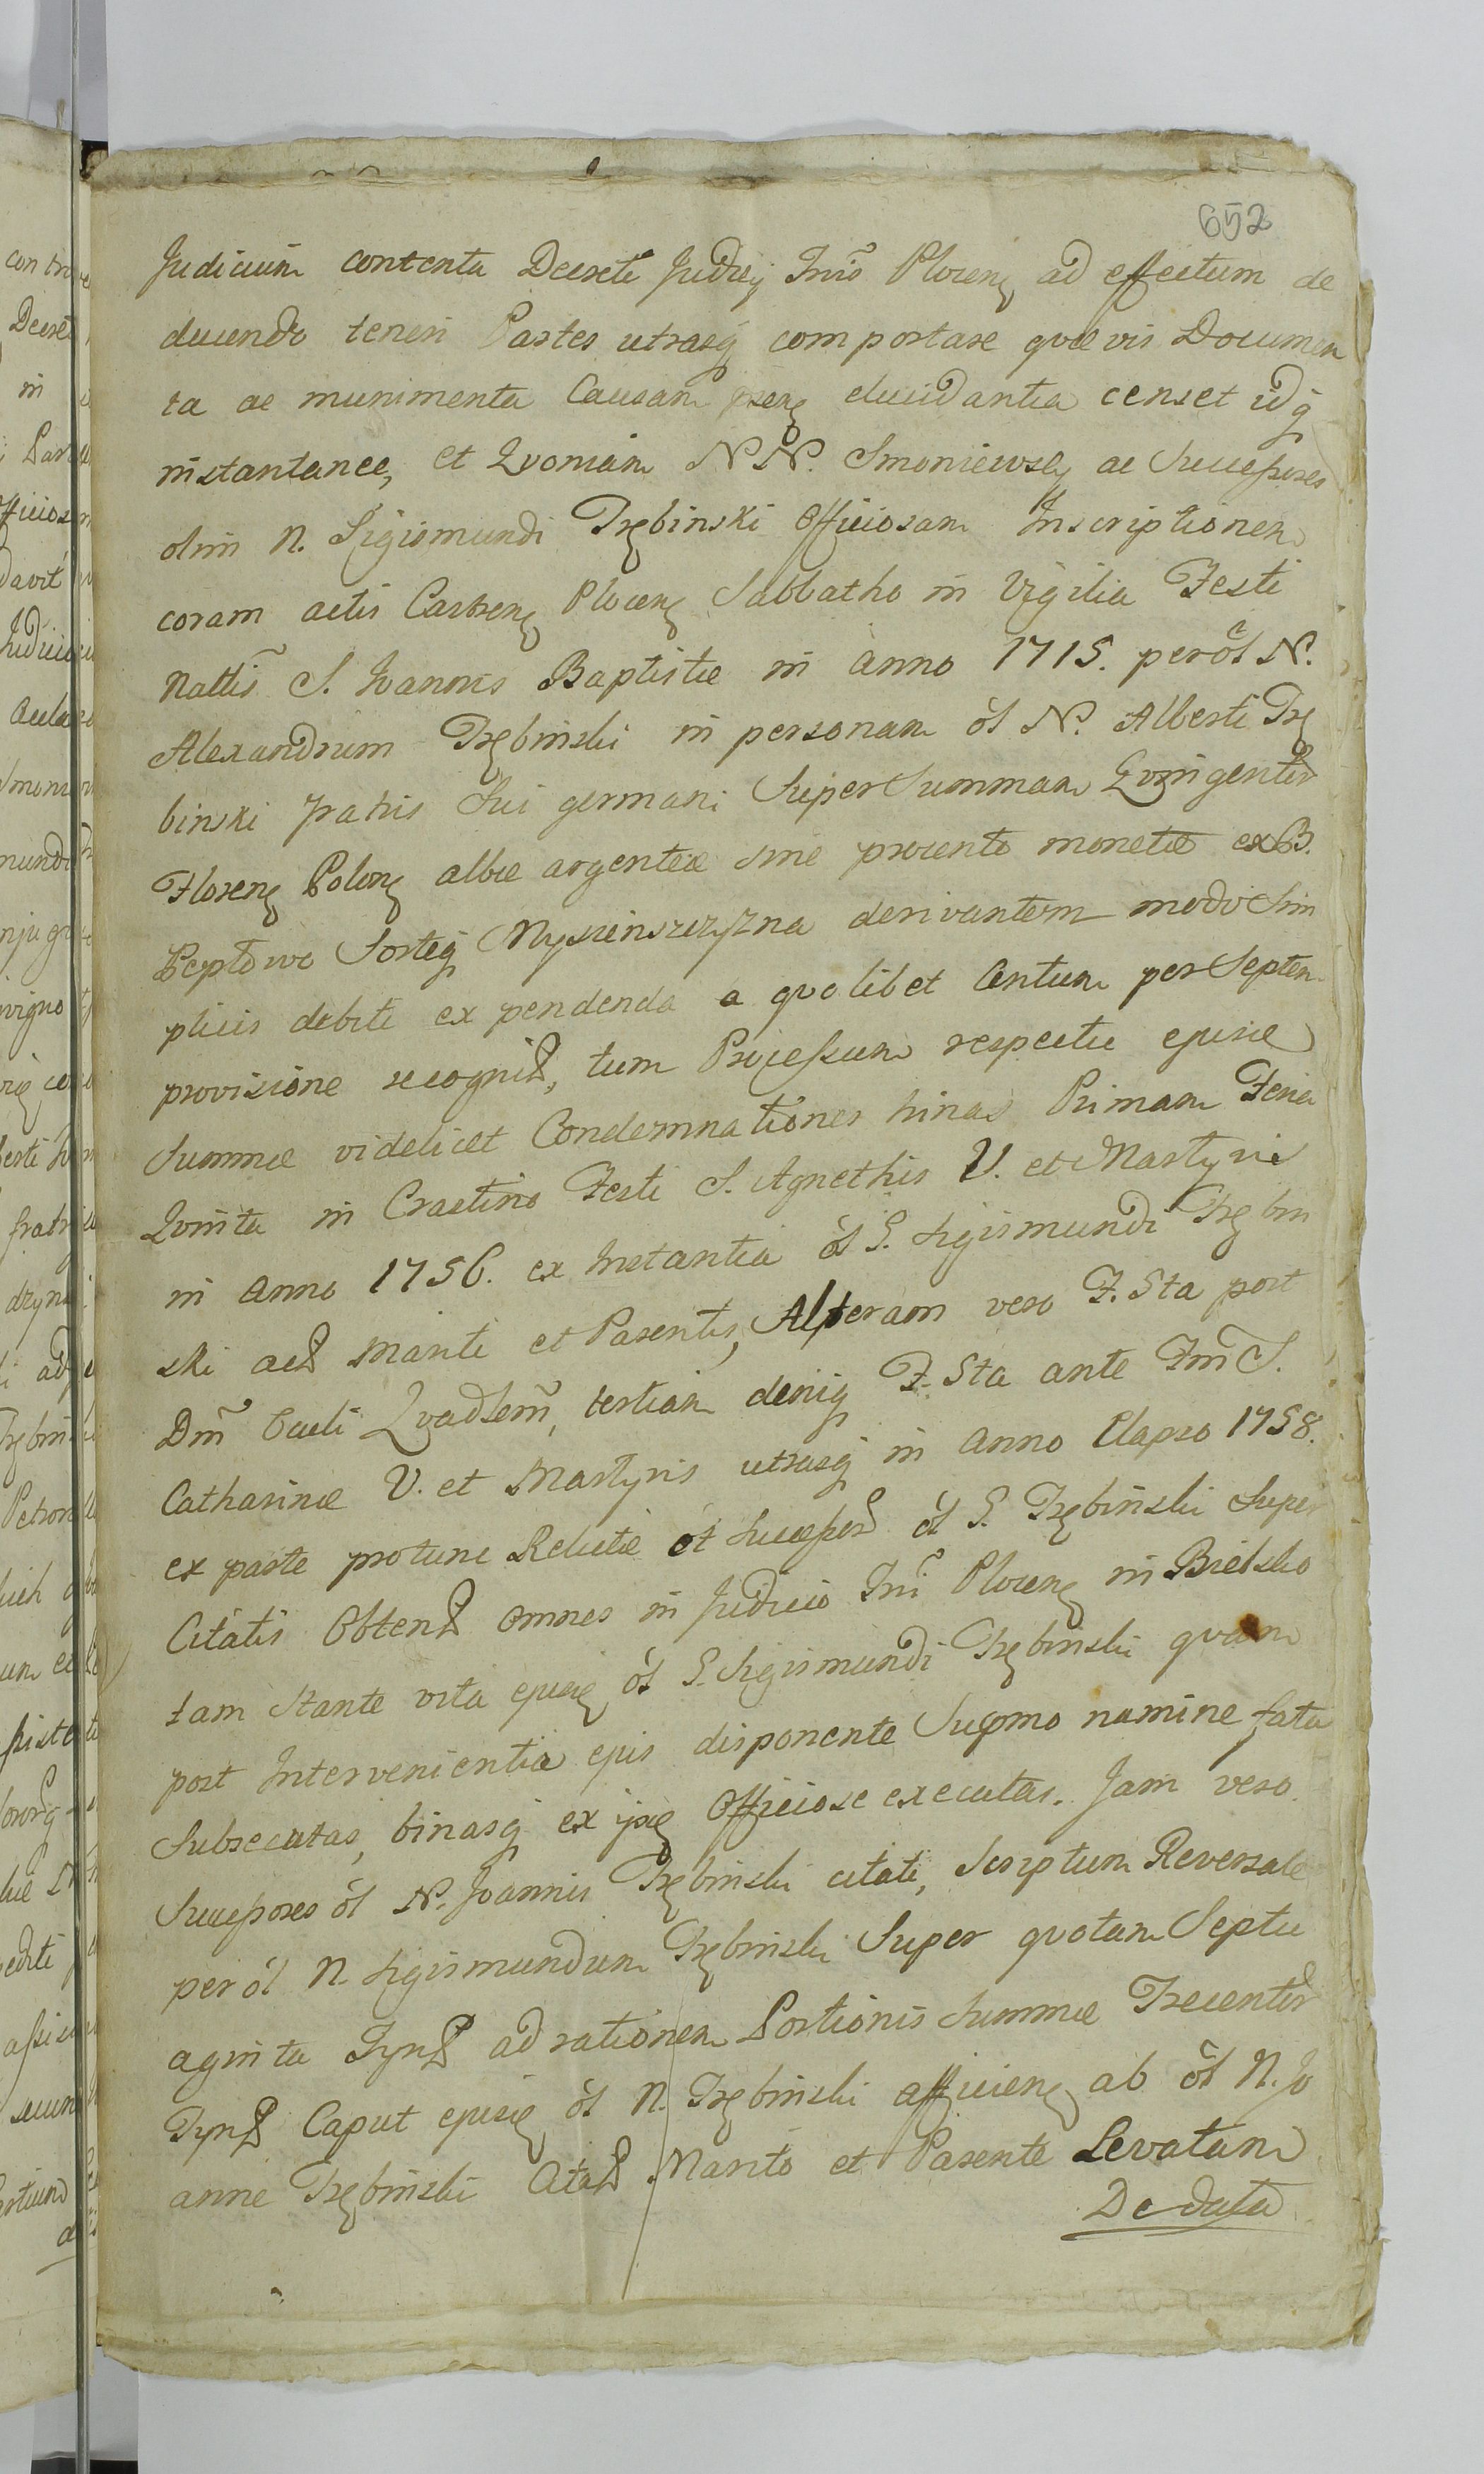 652
Judicium contenta Decreti Judicij Tnis Plocen ad effectum de
ducendo teneri Partes utrasq comportare quævis Documen
ta ac munimenta Causam præn elucidantia censet idq
instantanee, et Qvoniam N.N. Smoniewscy ac Successores
olim N. Sigismundi Trębinski Officiosam Inscriptionem
coram actis Castren Plocen Sabbatho in Vigilia Festi
Nattis S. Joannis Baptistæ in anno 1715. per ol N.
Alexandrum Trębinski in personam ol N. Alberti Trę
binski fratris Sui germani Super Summam Qvingentor
Floren Polon albæ argenteæ sine procento monetæ ex B.
Septowo Sorteq Mysienszczyzna derivantem modo Sim
plicis debiti expendenda a quolibet Centum per Septem
provisione recognit, tum Processum respectu ejusd
Summæ videlicet Condemnationes trinas Primam Feria
Qvinta in Crastino Festi S. Agnethis V. et Martyris
in anno 1756. ex Instantia ol G. Sigismundi Trębin
ski act Mariti et Parentis, Alteram vero F. 5ta post
Dnm Oculi Qvadlem, tertiam deniq F. 5ta ante Fm S.
Catharinæ V. et Martyris utrasq in anno elapso 1758.
ex parte protunc Relictæ et Successor ol G. Trębinski Super
Citatis Obtent omnes in Judicio Tni Plocen in Bielsko
tam stante vita ejusd ol G. Sigismundi Trębinski quam
post Intervenientia ejus disponente Supmo numine fata
Subsecutas, binasq ex ijsd Officiose executas. Jam vero
Successores ol N. Joannis Trębinski citati, Scriptum Reversale
per ol N. Sigismundum Trębinski Super quotam Septu
aginta Tynf ad rationem Portionis Summæ Trecentor
Tynf Caput ejusd ol N. Trębinski afficien ab ol N. Jo
anne Trębinski Citat Marito et Parente Levatam
De data